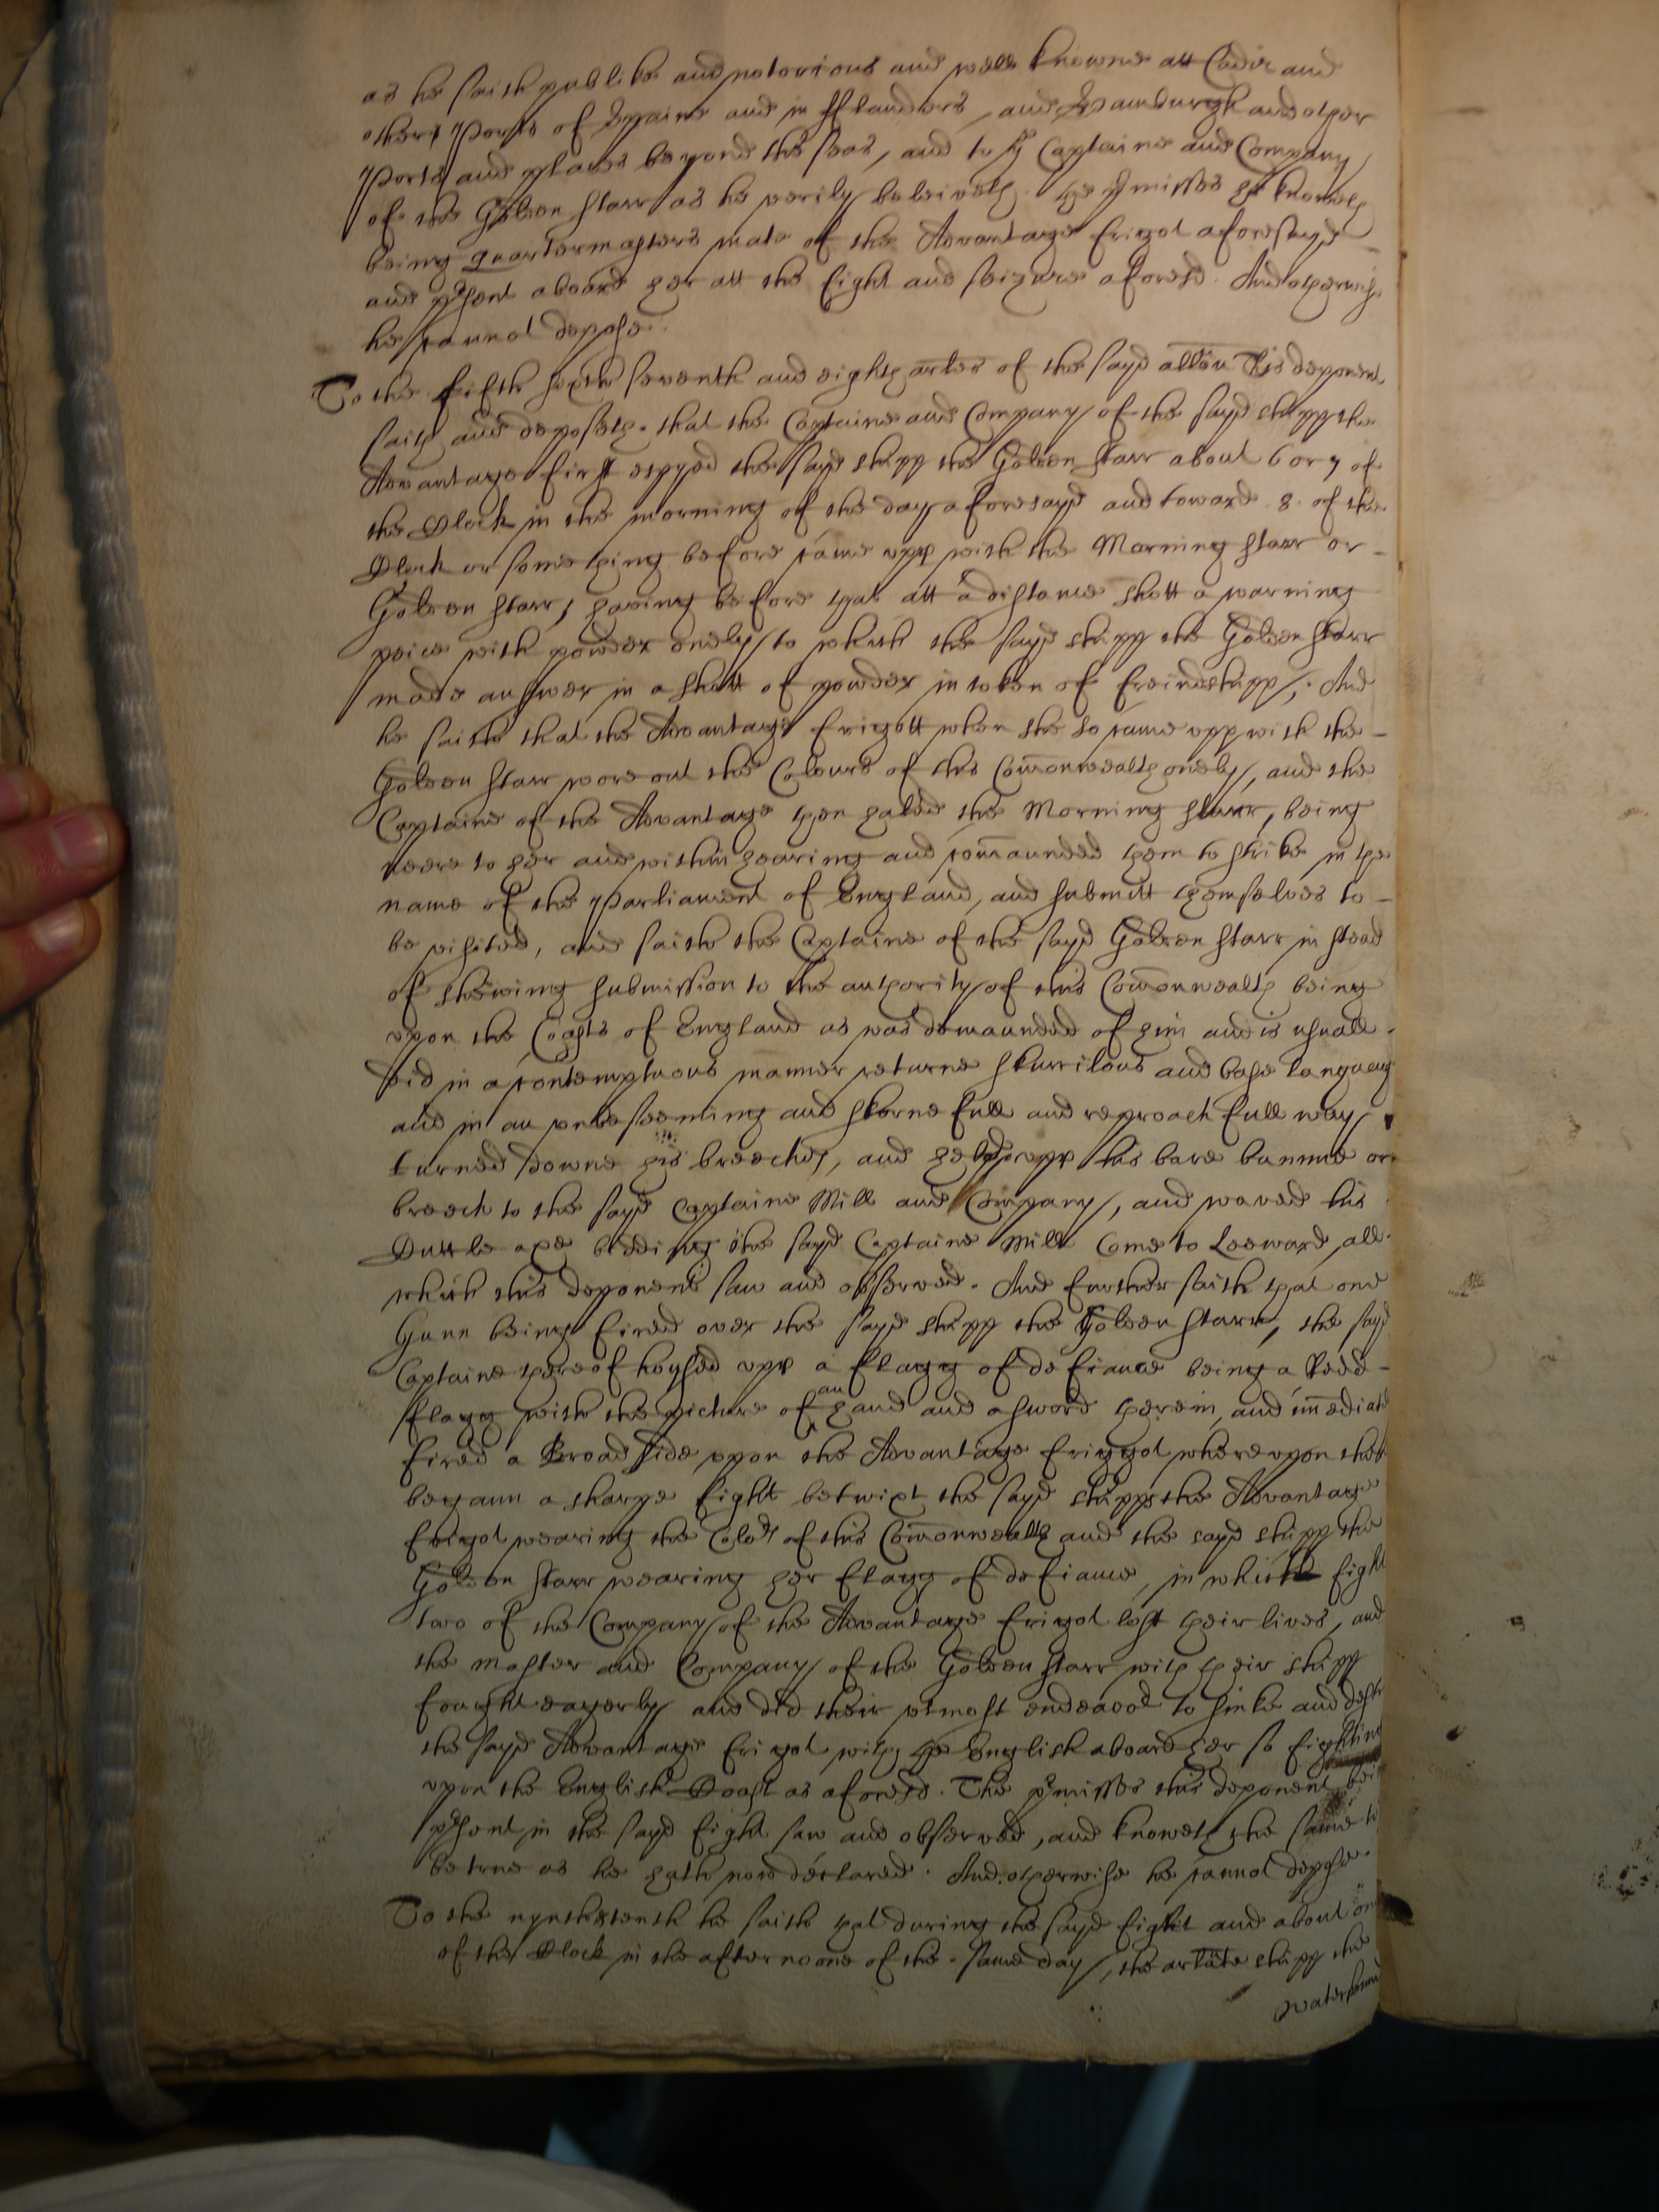 as he saith publike and notorious and well knowne att Cadiz and
other Ports of Spaine and in Flanders, and Hamburgh and other
Ports and places beyond the seas, and to ye Captaine and Company
of the Golden Starr as he verily beleiveth. The pmisses he knoweth
being quartermasters mate of the Advantage frigot aforesayd
and pṡent aboard her att the fight and seizure aforesd. And otherwise
he cannot depose.
To the fifth sixth seventh and eighth arlēs of the sayd allōn this deponent
saith and deposeth that the Captaine and Company of the sayd shipp the
Advantage first espyed the sayd shipp the Golden Starr about 6 or 7 of
the Clock in the morning of the day aforesayd and toward 8. of the
Clock or something before came upp with the Morning Starr or
Golden Starr, having before that att a distance shott a warning
peice with powder onely, to which the sayd shipp the Golden Starr
made answer in a shott of powder in token of freindshipp, And
he saith that the Advantage frigott when she so came upp with the
Golden Starr wore out the Colours of this Com̄onwealth onely, and the
Captaine of the Advantage then haled the Morning Starr, being
neere to her and within hearing and com̄aunded them to strike in the
name of the Parliament of England, and submitt themselves to
be visited, and saith the Captaine of the sayd Golden Starr in stead
of shewing submission to the authority of this Com̄onwealth being
upon the Coasts of England as was demaunded of him and is usuall
did in a contemptuous manner returne skurrilous and base languag
and in an unbeseeming and skornefull and reproachfull way
turned downe his breeches, and held upp his bare bumme or
breech to the sayd Captaine Mill and Company, and waved his
Cuttle axe bidding the sayd Captaine Mill Come to Leeward, all
which this deponent saw and observed. And further saith that one
Gunn being fired over the sayd shipp the Golden Starr, the sayd
Captaine thereof hoysed upp a flagg of defiance being a Redd
flagg with the picture of an hand and a sword therein, and im̄ediat
fired a Broad side upon the Advantage friggot whereupon ther
begann a sharpe fight betwixt the sayd shipps the Advantage
frigot wearing the Colors of this Com̄onwealth and the sayd shipp the
Golden Starr wearing her flagg of defiance, in which fight
two of the Company of the Advantage frigot lost their lives, and
the master and Company of the Golden Starr with their shipp
fought eagerly and did their utmost endeavor to sinke and destr
the sayd Advantage frigot with the English aboard her so fighting
upon the English Coast as aforesd. The pmisses this deponent bei
pṡent in the sayd fight saw and observed, and knoweth the same to
be true as he hath now declared. And otherwise he cannot depose.
To the nynth & tenth he saith that during the sayd fight and about one
of the Clock in the afternoone of the same day, the arlāte shipp the